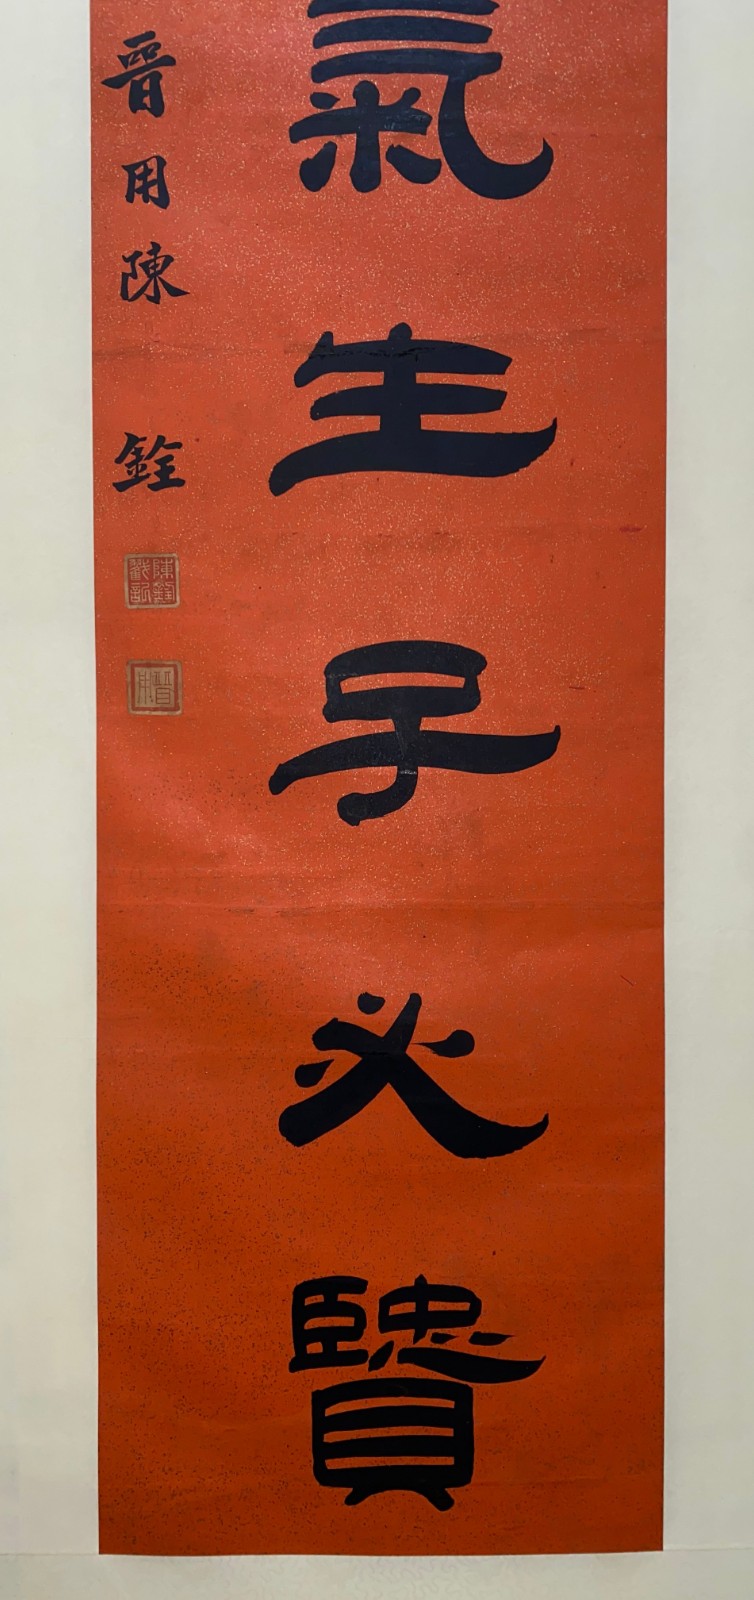 氣生子必贒
晉用陳銓
陳銓戳記
晉用